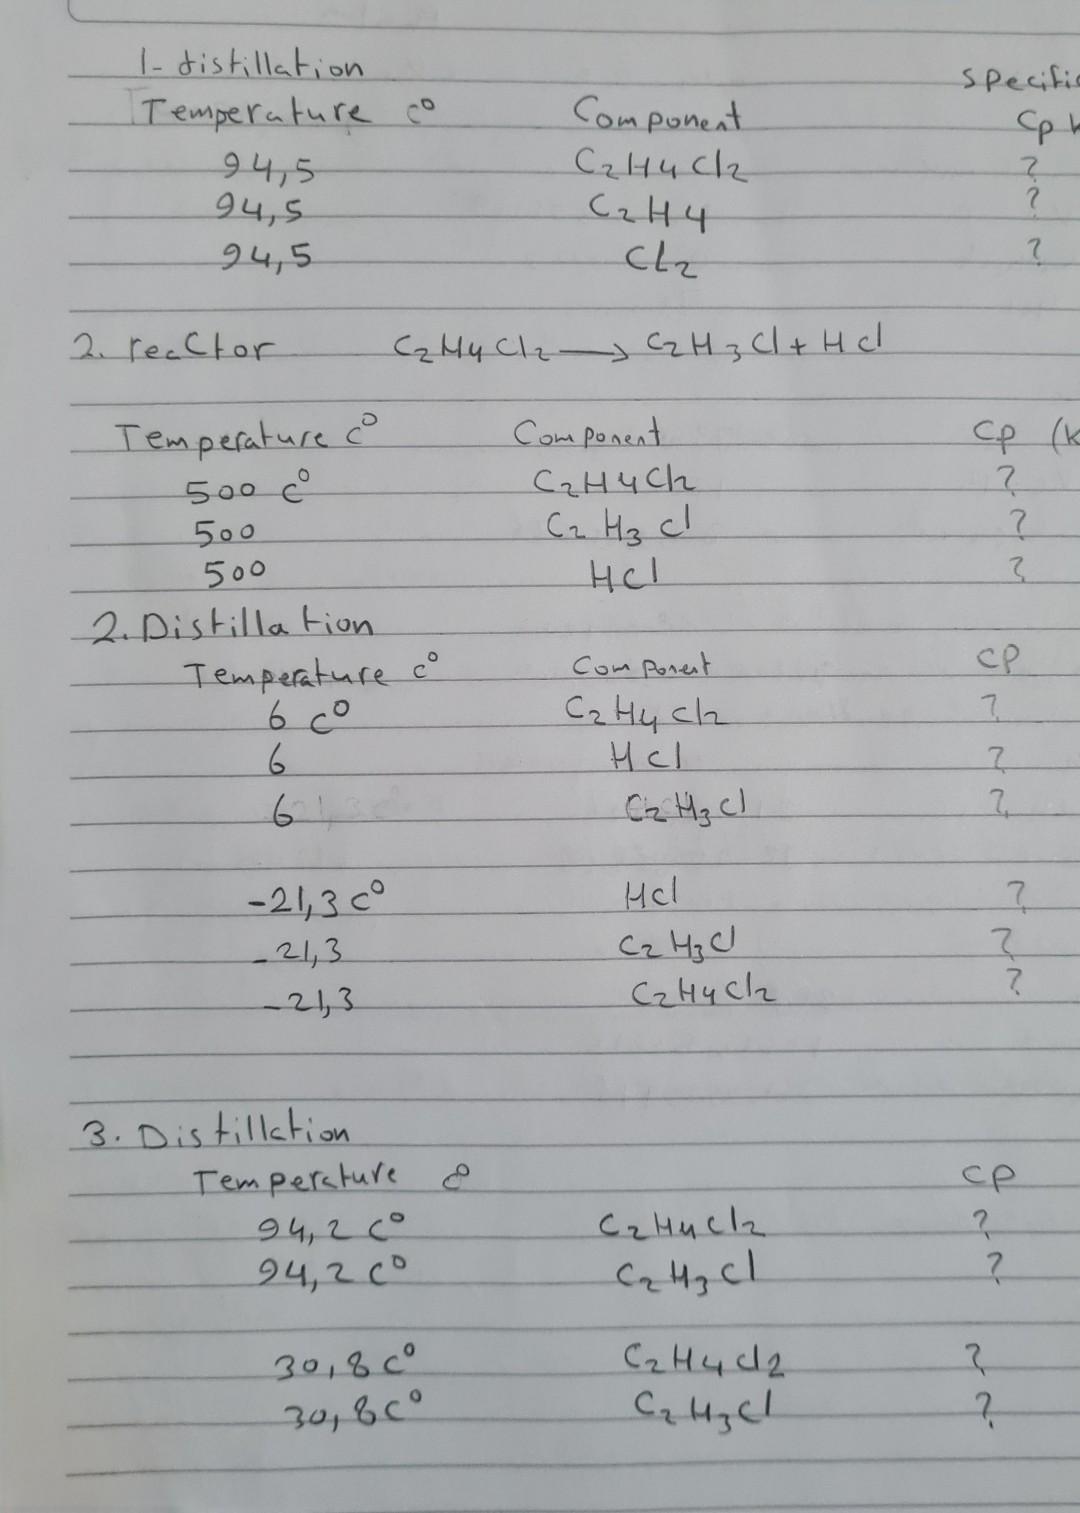 1- distillation
specific
Temperature c° Component Cp k
94,5 C2H4Cl2 ?
94,5 C2H4 ?
94,5 CL2 ?
2. reactor C2H4Cl2 → C2H3Cl + Hcl
Temperature c° Component Cp (K
500 c° C2H4Cl2 ?
500 C2 H3 cl ?
500 HCl ?
2. Distillation
Temperature c° Component CP
6 c° C2H4Cl2 ?
6 Hcl ?
6 C2H3Cl ?
-21,3 c° Hcl ?
-21,3 C2H3Cl ?
-21,3 C2H4Cl2 ?
3. Distillation
Temperature c° CP
94,2 c° C2H4Cl2 ?
94,2 c° C2H3Cl ?
30,8 c° C2H4Cl2 ?
30,8 c° C2H3Cl ?